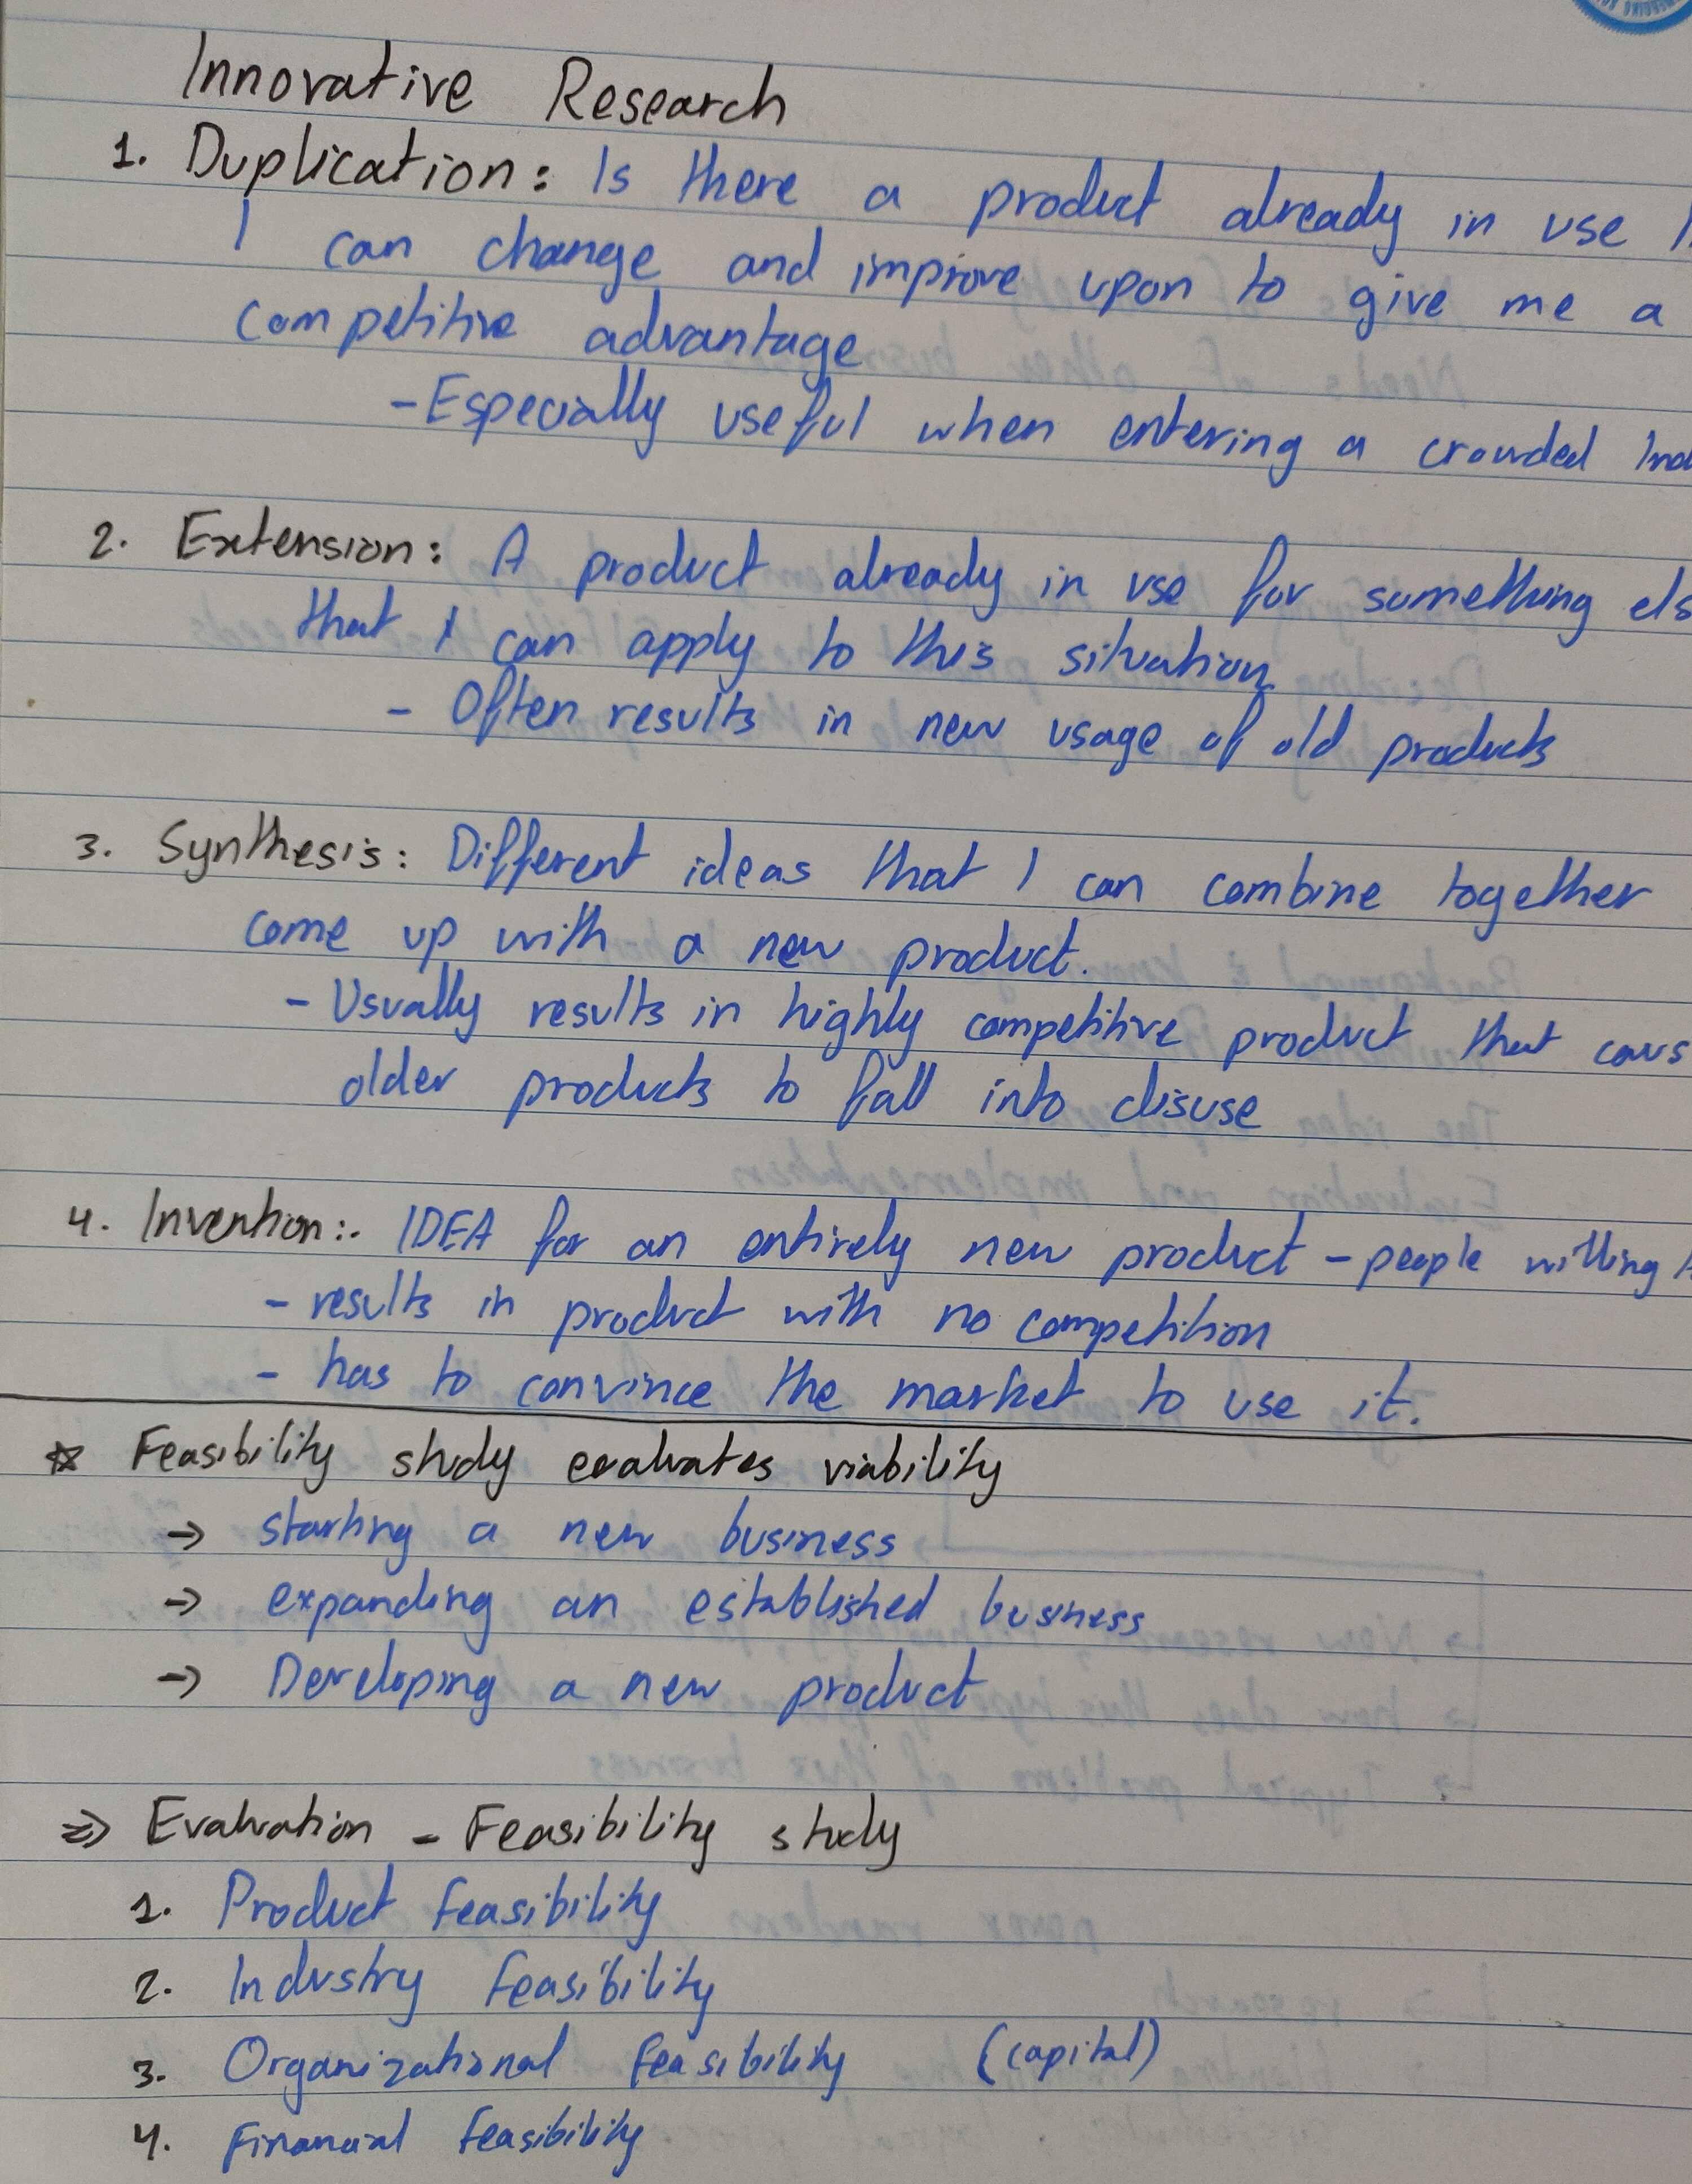 Innovative Research
1. Duplication: Is there a product already in use
I can change and improve upon to give me a
competitive advantage
- Especially useful when entering a crowded
2. Extension: A product already in use for something els
that I can apply to this situation
- Often results in new usage of old products
3. Synthesis: Different ideas that I can combine together
come up with a new product.
- Usually results in highly competitive product that caus
older products to fall into disuse
4. Invention:. IDEA for an entirely new product - people willing
- results in product with no competition
- has to convince the market to use it.
☆ Feasibility study evaluates viability
→ starting a new business
→ expanding an established business
→ Developing a new product
⇒ Evaluation - Feasibility study
1. Product Feasibility
2. Industry Feasibility
3. Organizational Feasibility (capital)
4. Financial Feasibility